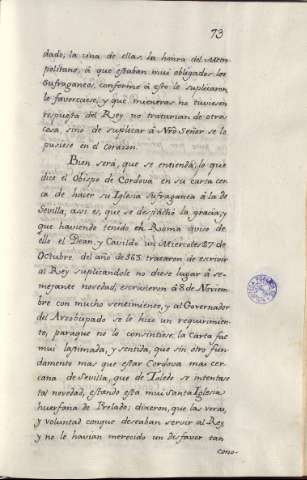 73
dado, la una de ellas, la honra del Metro-
politano, á que estaban mui obligados los
Sufraganeos, conforme á esto le suplicaron
le favoreciese, y que mientras no tuviesen
respuesta del Rey no tratarian de otra
cosa, sino de suplicar á Nrõ Señor se lo
pusiese en el corazon.
Bien será, que se entienda, lo que
dice el Obispo de Cordova en su carta cer-
ca de hacer su Iglesia Sufraganea á la de
Sevilla; asi es, que se despachó la gracia, y
que haviendo tenido en Roma aviso de
ello el Dean, y Cavildo un Miercoles 27 de
Octubre, del año de 563. trataron de escrivir
al Rey suplicandole no diese lugar á se-
mejante novedad, escrivieron á 8 de Noviem-
bre con mucho sentimiento, y al Governador
del Arzobispado se le hizo un requirimien-
to, paraque no lo consintiese: la Carta fue
mui lastimada, y sentida, que sin otro fun-
damento mas que estar Cordova mas cer-
cana de Sevilla, que de Toledo se intentase
tal novedad, estando esta mui Santa Iglesia
huerfana de Prelado; dixeron, que las veras,
y voluntad conque deseaban servir al Rey
y no le havian merecido un disfavor tan
cono-